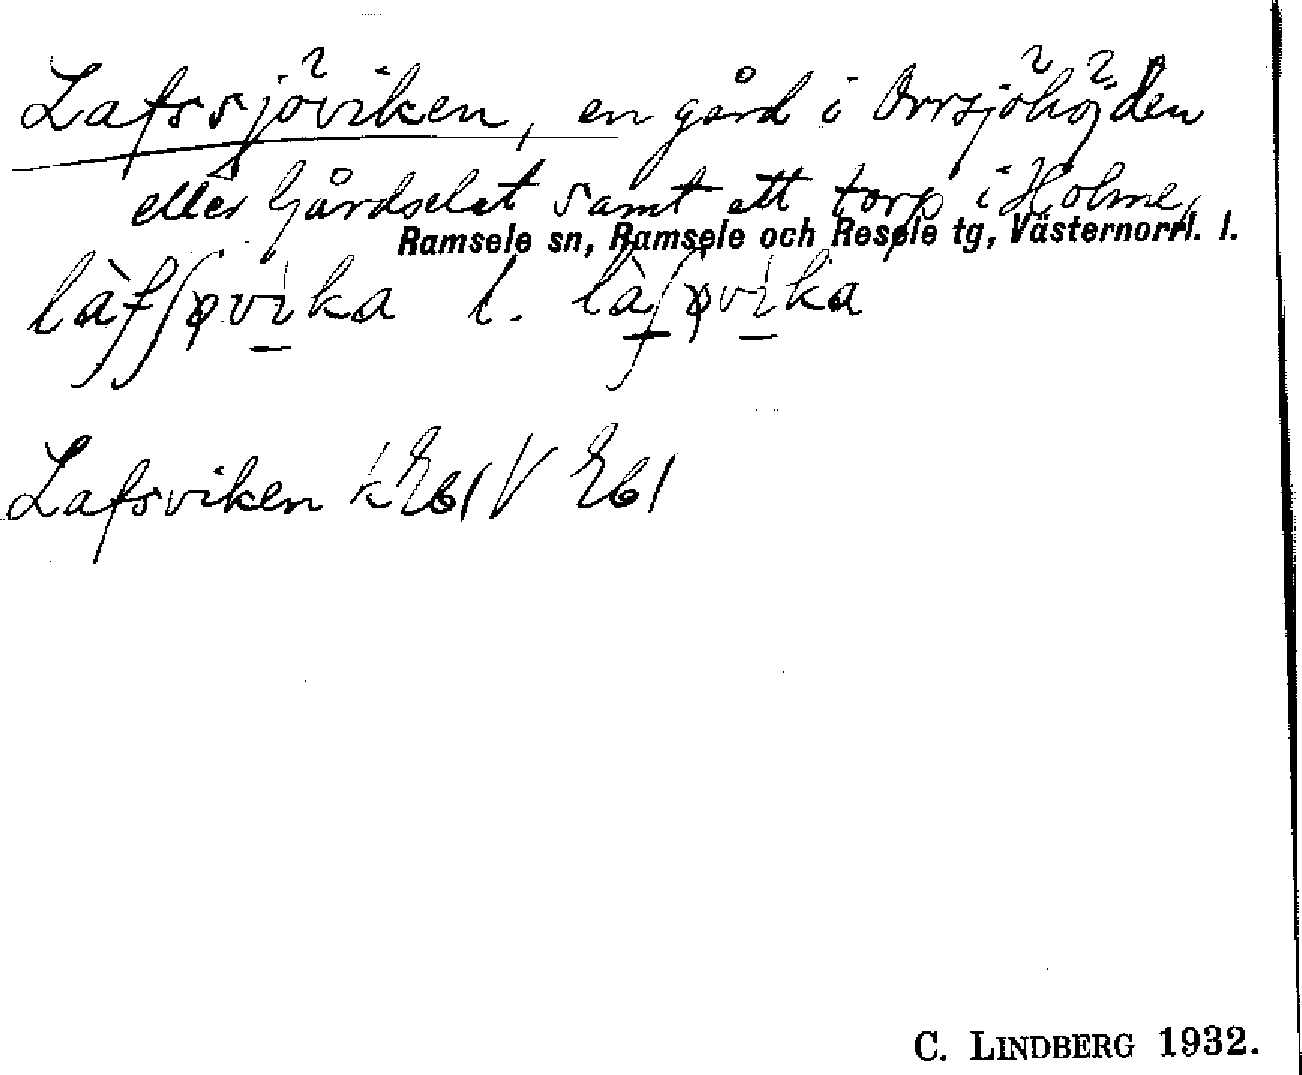 Lafssjöviken, en gård i Orrsjöhöjden
eller Gårdselet samt ett torp i Holme,
Ramsele sn, Ramsele och Resele tg, Västernorrl. l.
l.
Lafsviken
C. LINDBERG 1932.